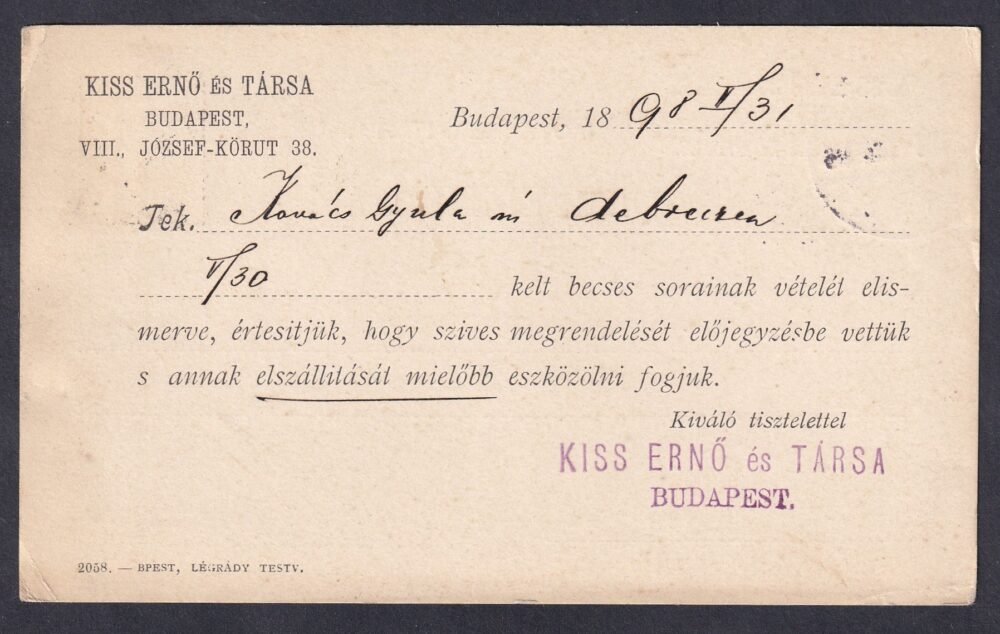 KISS ERNŐ ÉS TÁRSA
BUDAPEST,
VIII., JÓZSEF-KÖRUT 38.
Budapest, 18 98 V/31
Tek. Kovács Gyula úr Debreczen
V/30 kelt becses sorainak vételét elis-
merve, értesitjük, hogy szives megrendelését előjegyzésbe vettük
s annak elszállitását mielőbb eszközölni fogjuk.
Kiváló tisztelettel
KISS ERNŐ és TÁRSA
BUDAPEST.
2058. — BPEST, LÉGRÁDY TESTV.